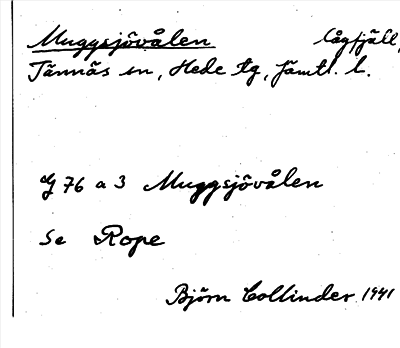 Muggsjövålen lågfjäll,
Tännäs sn, Hede tg, Jämtl. l.
G 76 a 3 Muggsjövålen
Se Rope
Björn Collinder 1941